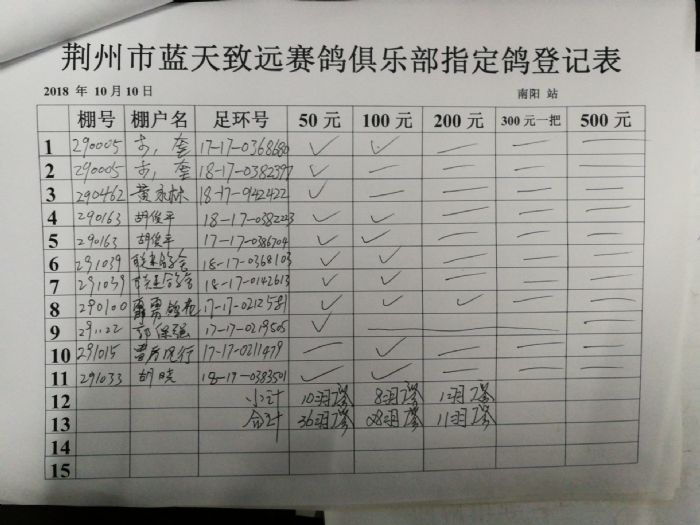 荆州市蓝天致远赛鸽俱乐部指定鸽登记表
2018 年 10 月 10 日 南阳 站
棚号 棚户名 足环号 50 元 100 元 200 元 300 元一把 500 元
1 290005 17-17-0368680 ✓ ✓ — — —
2 290005 18-17-0382397 ✓ — — — —
3 290462 黄永林 18-17-0142422 ✓ — — — —
4 290163 胡俊平 18-17-0382223 ✓ ✓ — — —
5 290163 胡俊平 17-17-0386704 ✓ ✓ — — —
6 291039 18-17-0368103 ✓ ✓ — — —
7 291039 18-17-0142613 ✓ ✓ — — —
8 290100 17-17-0212581 ✓ ✓ ✓ — —
9 291122 郭保强 17-17-0219505 ✓ — — — —
10 291015 17-17-0211479 — ✓ — — —
11 291033 胡晓 18-17-0383501 ✓ ✓ — — —
12 小计 10羽 8羽 1羽
13 合计 36羽 28羽 11羽
14
15